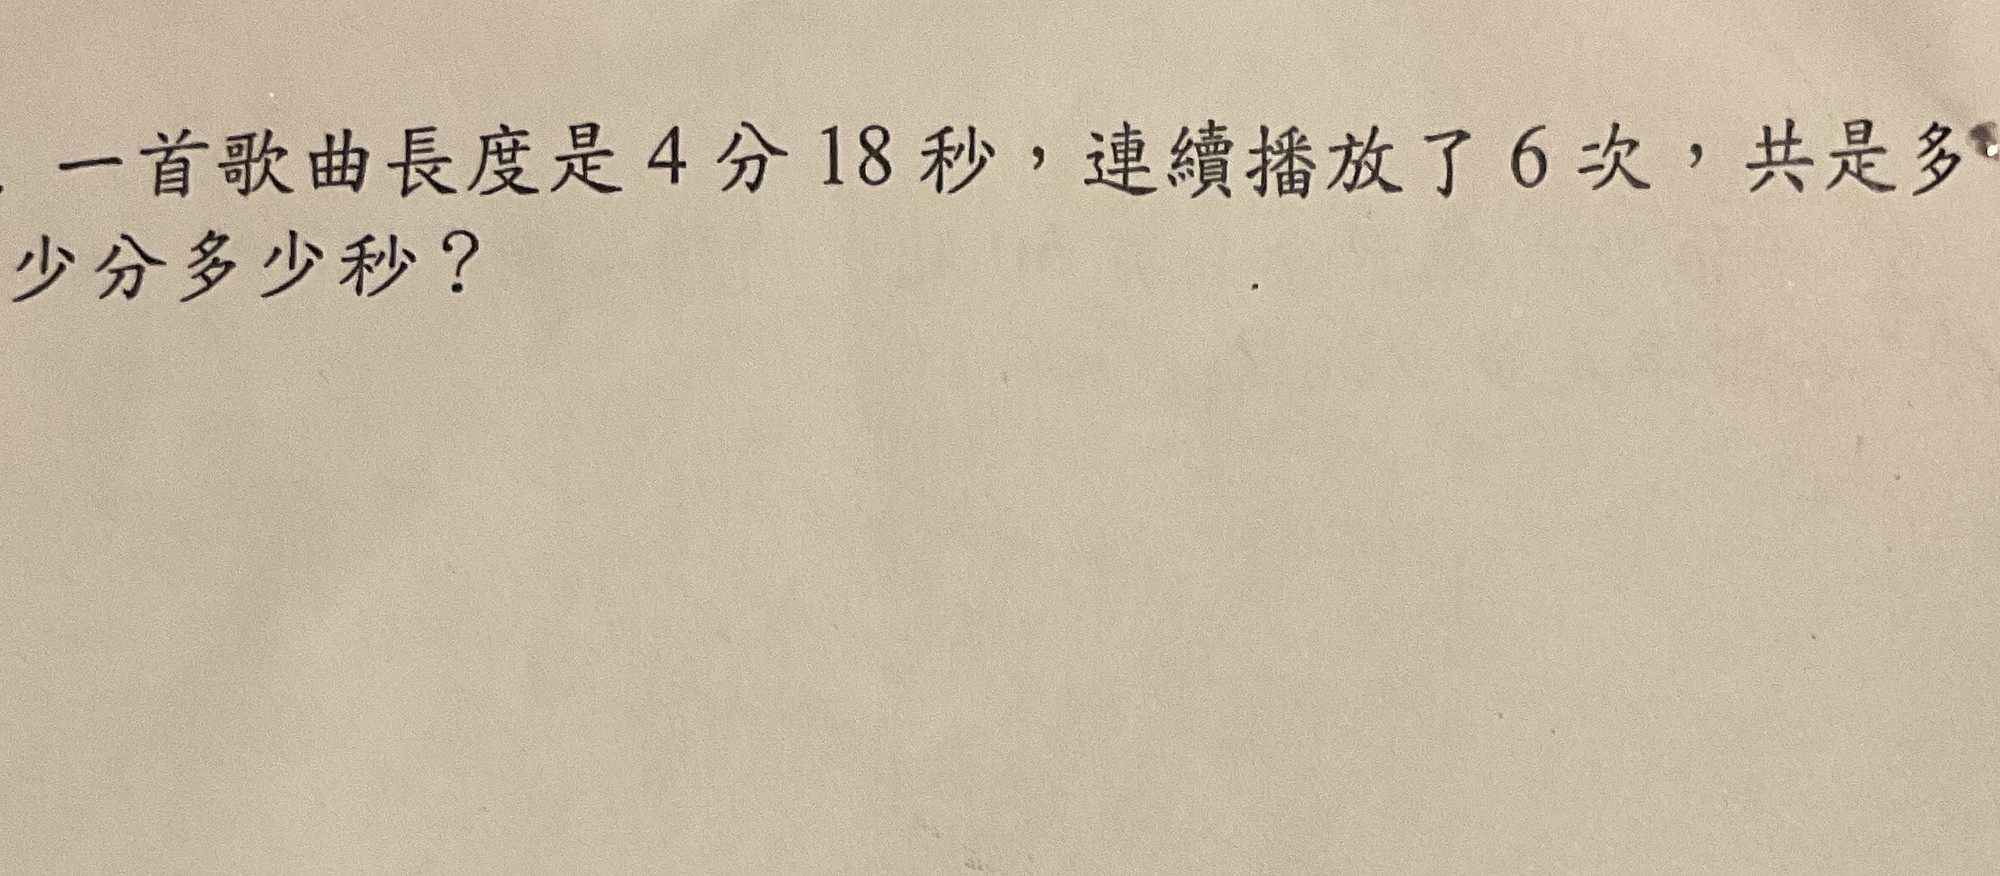 一首歌曲長度是 4 分 18 秒，連續播放了 6 次，共是多
少分多少秒？